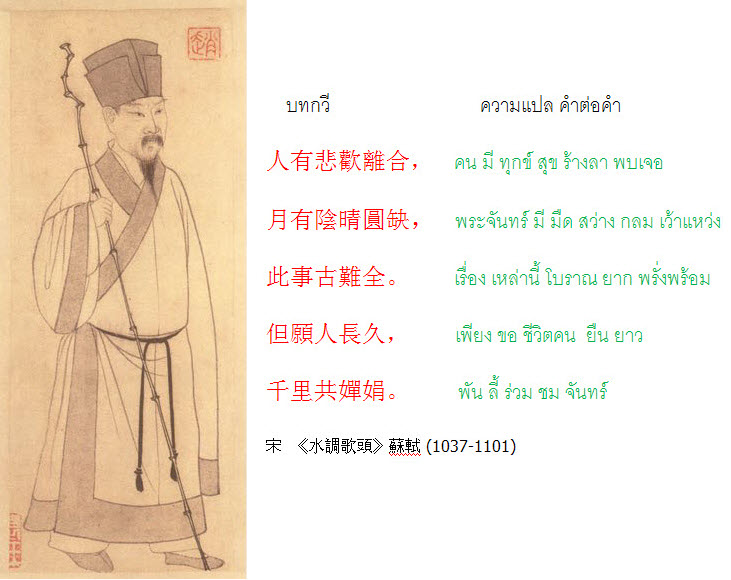 บทกวี ความแปล คำต่อคำ
人有悲歡離合， คน มี ทุกข์ สุข ร้างลา พบเจอ
月有陰晴圓缺， พระจันทร์ มี มืด สว่าง กลม เว้าแหว่ง
此事古難全。 เรื่อง เหล่านี้ โบราณ ยาก พรั่งพร้อม
但願人長久， เพียง ขอ ชีวิตคน ยืน ยาว
千里共嬋娟。 พัน ลี้ ร่วม ชม จันทร์
宋 《水調歌頭》蘇軾 (1037-1101)